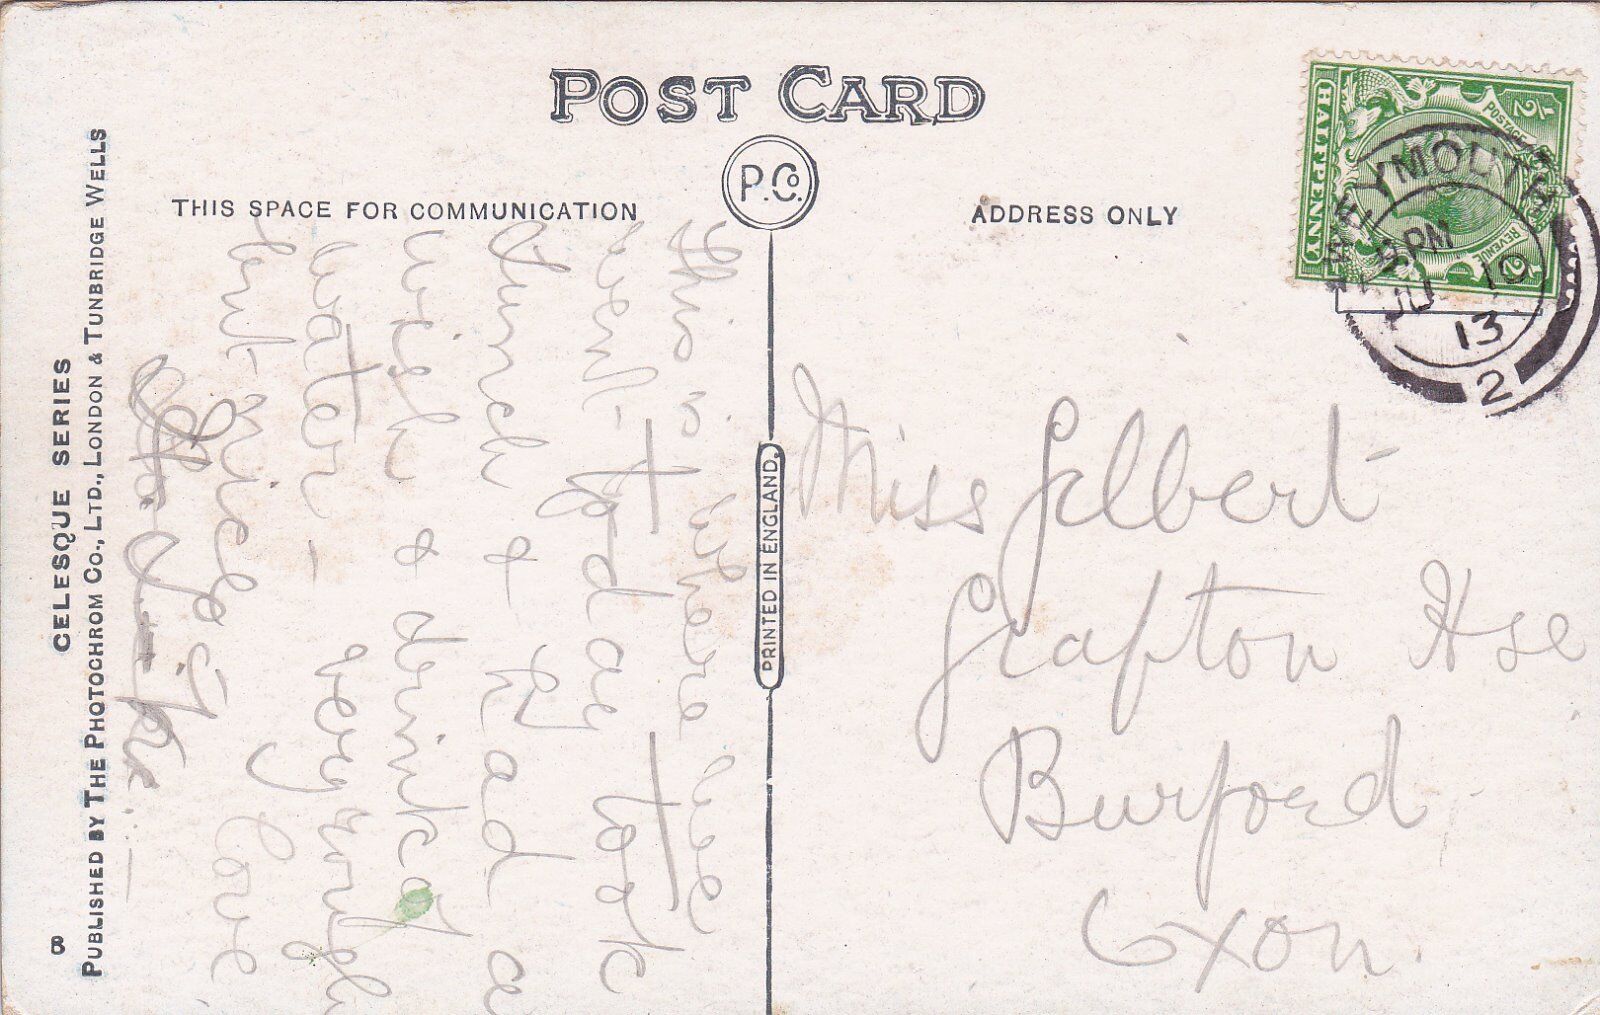 POST CARD
P.Co.
THIS SPACE FOR COMMUNICATION
ADDRESS ONLY
HALFPENNY
½ POSTAGE REVENUE ½
WEYMOUTH
PM
JU 10
13
2
This is where we
went to day took
lunch & had a
wish & drink of
water – very rough
but nice. love
Miss Gilbert
Grafton Hse
Burford
Oxon.
PRINTED IN ENGLAND
CELESQUE SERIES
PUBLISHED BY THE PHOTOCHROM CO., LTD., LONDON & TUNBRIDGE WELLS
B